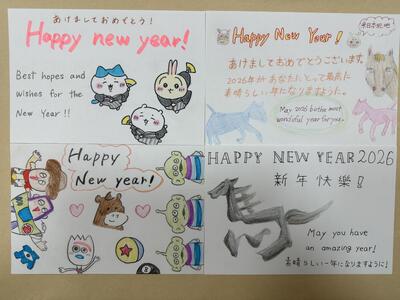 あけましておめでとう!
Happy new year!
Best hopes and
wishes for the
New Year!!
Happy New Year!
あけましておめでとうございます。
2026年があなたにとって最高に
素晴らしい一年になりますように。
May 2026 be the most
wonderful year for you.
Happy
New year!
HAPPY NEW YEAR 2026
新年快樂!
May you have
an amazing year!
素晴らしい一年になりますように!